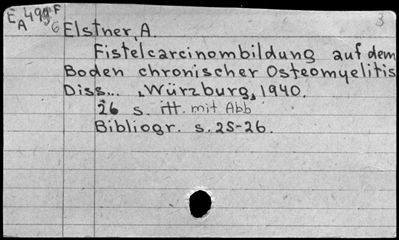 3
Elstner, A.
Fistelcarcinombildung auf dem
Boden chronischer Osteomyelitis
Diss... , Würzburg, 1940.
26 s. mit Abb
Bibliogr. s. 25-26.